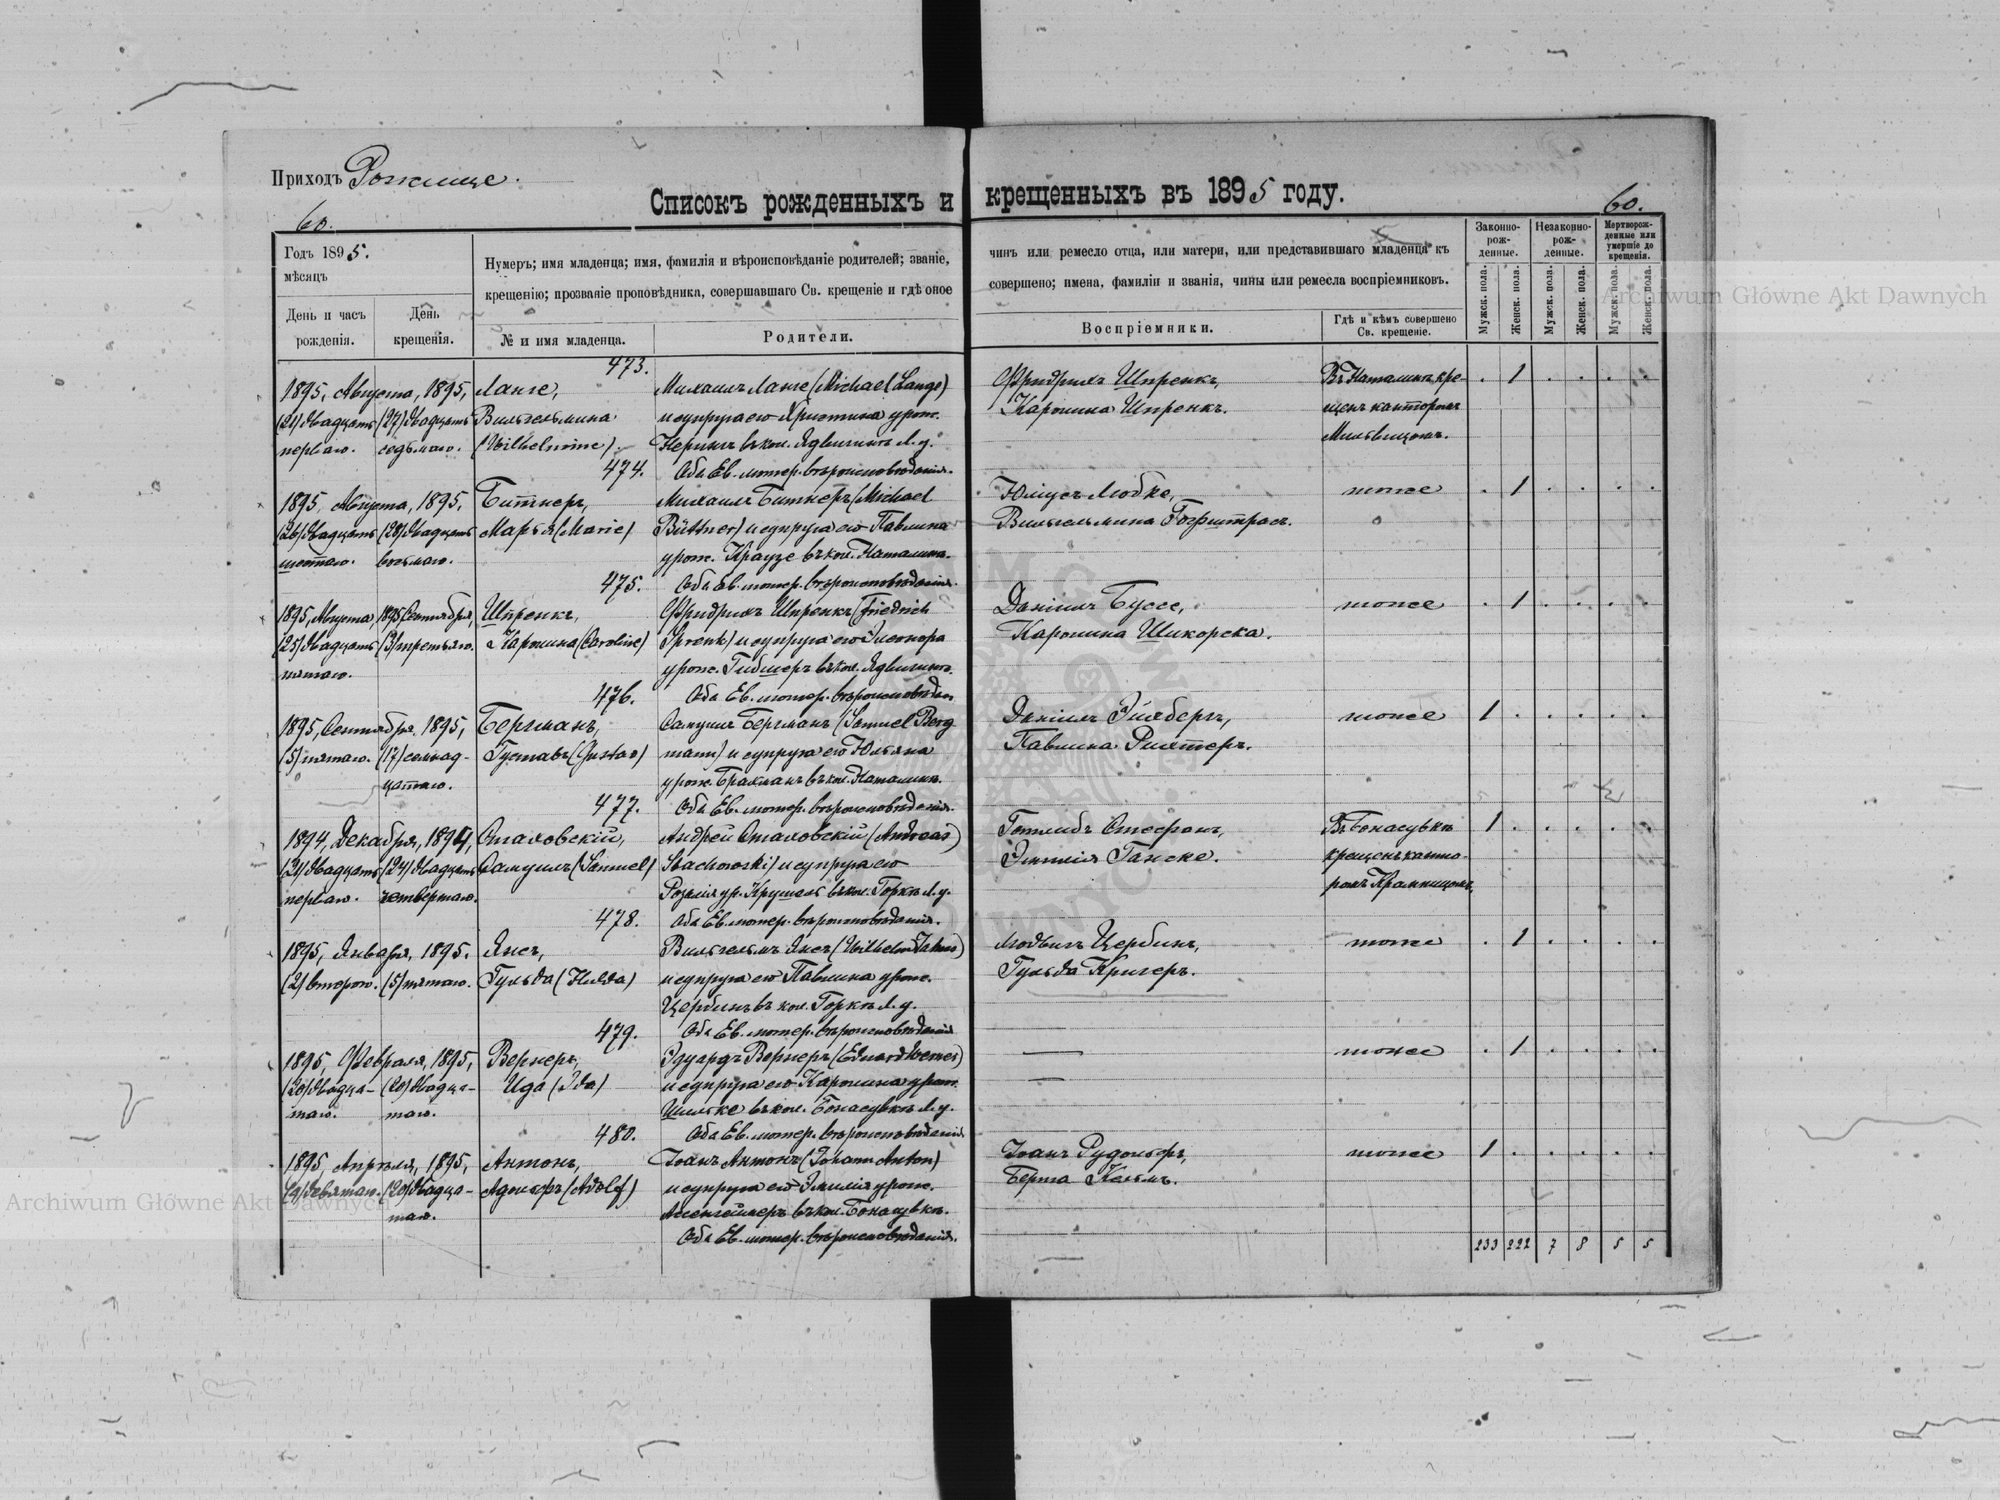 Приходъ Рожище.
Списокъ рожденныхъ и крещенныхъ въ 1895 году.
60.
60.
Годъ 1895.
мѣсяцъ
День и часъ рожденія.
День крещенія.
Нумеръ; имя младенца; имя, фамилія и вѣроисповѣданіе родителей; званіе,
крещенію; прозваніе проповѣдника, совершавшаго Св. крещеніе и гдѣ оное
№ и имя младенца.
Родители.
чинъ или ремесло отца, или матери, или представившаго младенца къ
совершено; имена, фамиліи и званія, чины или ремесла воспріемниковъ.
Воспріемники.
Гдѣ и кѣмъ совершено Св. крещеніе.
Законно-рож-денные.
Незаконно-рож-денные.
Мертворож-денные или умершіе до крещенія.
Мужск. пола.
Женск. пола.
Мужск. пола.
Женск. пола.
Мужск. пола.
Женск. пола.
473.
1895, Августа, 1895, Ланге, Михаилъ Ланге (Michael Lange) Фридрихъ Шпренкъ, Въ Наталинѣ кре- . 1 . . . .
(21) двадцать (27) двадцать Вильгельмина и супруга его Христина урож. Каролина Шпренкъ. щенъ канторомъ
перваго. седьмаго. (Wilhelmine). въ кол. Ядвигинъ Л. у.
474. Оба Ев. лютер. вѣроисповѣданія.
1895, Августа, 1895, Битнеръ, Михаилъ Битнеръ (Michael Юліусъ Любке, тоже . 1 . . . .
(26) двадцать (28) двадцать Марья (Marie) Büttner) и супруга его Павлина Вильгельмина
шестаго. восьмаго. урож. Краузе въ кол. Наталинъ.
475. Оба Ев. лютер. вѣроисповѣданія.
1895, Августа 1895 Сентября, Шпренкъ, Фридрихъ Шпренкъ (Friedrich Даніилъ Буссе, тоже . 1 . . . .
(25) двадцать (3) третьяго. Каролина (Caroline) Sprenk) и супруга его Элеонора Каролина Шикорска.
пятаго. урож. въ кол. Ядвигинъ.
476. Оба Ев. лютер. вѣроисповѣдан
1895, Сентября, 1895, Бергманъ, Самуилъ Бергманъ (Samuel Berg Даніилъ тоже 1 . . . . .
(5) пятаго. (17) семнад- Густавъ (Gustav) mann) и супруга его Юльяна Павлина Рихтеръ.
цатаго. урож. Брахманъ въ кол. Наталинъ.
477. Оба Ев. лютер. вѣроисповѣданія.
1894, Декабря, 1894, Стаховскій, Андрей Стаховскій (Andreas) Готлибъ Стефанъ, Въ Бонасувкѣ 1 . . . . .
(21) двадцать (24) двадцать Самуилъ (Samuel) Stachowski) и супруга его Эмилія Ганске. крещенъ канто-
перваго. четвертаго. Розалія ур. въ кол. Горкѣ Л. у. ромъ
478. Оба Ев. лютер. вѣроисповѣданія.
1895, Января, 1895. Янсъ, Вильгельмъ Янсъ (Wilhelm Jahns) Людвигъ Цербинъ, тоже . 1 . . . .
(2) втораго. (5) пятаго. Гульда (Hulda) и супруга его Павлина урож. Гульда Кригеръ.
Цербинъ въ кол. Горкѣ Л. у.
479. Оба Ев. лютер. вѣроисповѣданія
1895, Февраля, 1895, Вернеръ, Эдуардъ Вернеръ (Eduard Werner) — тоже . 1 . . . .
(20) двадца- (20) двадца- Ида (Ida) и супруга его Каролина урож. —
таго. таго. Шильке въ кол. Бонасувкѣ Л. у.
480. Оба Ев. лютер. вѣроисповѣданія.
1895, Апрѣля, 1895, Антонъ, Іоанъ Антонъ (Johann Anton) Іоанъ Рудольфъ, тоже 1 . . . . .
(9) девятаго. (20) двадца- Адольфъ (Adolf) и супруга его Эмилія урож. Берта
таго. въ кол. Бонасувкѣ.
Оба Ев. лютер. вѣроисповѣданія.
233 222 7 8 5 5
Archiwum Główne Akt Dawnych
Archiwum Główne Akt Dawnych